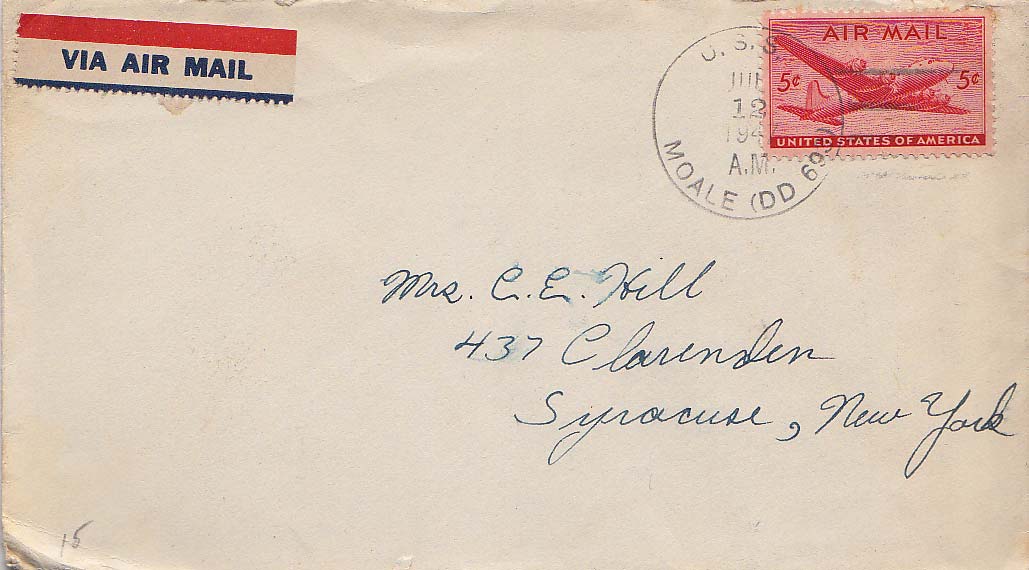 VIA AIR MAIL
U.S.S.
12
194
A.M.
MOALE (DD 693)
AIR MAIL
5¢ 5¢
UNITED STATES OF AMERICA
Mrs. C. E. Hill
437 Clarenden
Syracuse, New York
15